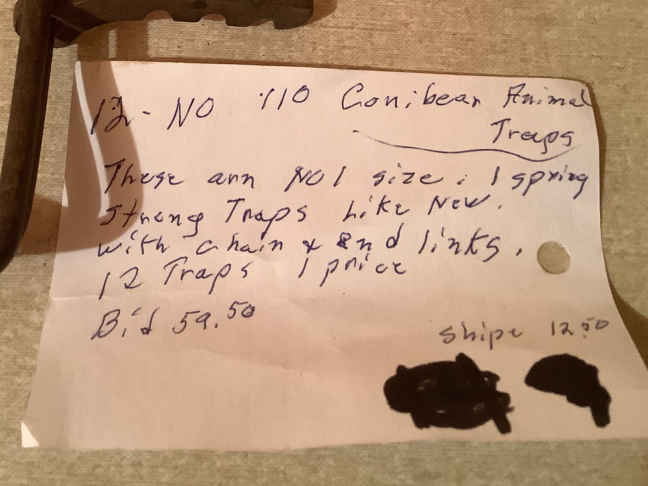 12 - NO 110 Conibear Animal
Traps
These ann NO 1 size. 1 spring
strong Traps Like New.
with chain & end links.
12 Traps 1 price
Bid 59.50
shipe 12.50